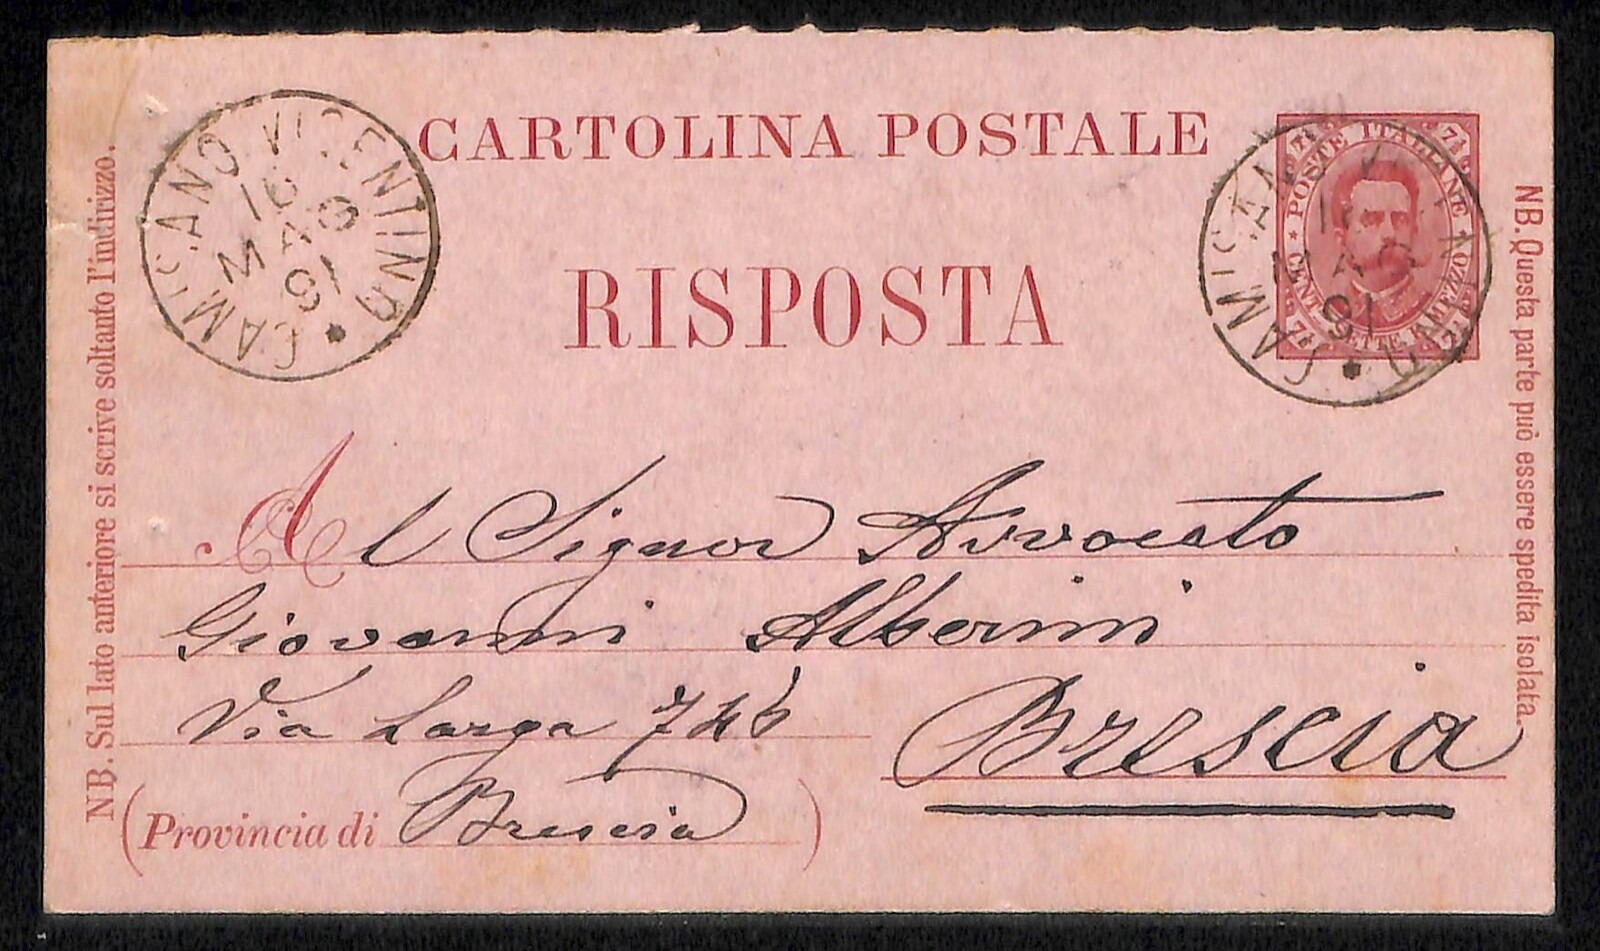 CARTOLINA POSTALE
RISPOSTA
CAMISANO VICENTINO
16 MAG 91
POSTE ITALIANE
CENT. SETTE E MEZZO
7½ 7½
7½ 7½
CAMISANO VICENTINO
MAG 91
Al Signor Avvocato
Giovanni Alberini
Via Larga
Brescia
(Provincia di Brescia)
NB. Sul lato anteriore si scrive soltanto l'indirizzo.
NB. Questa parte può essere spedita isolata.